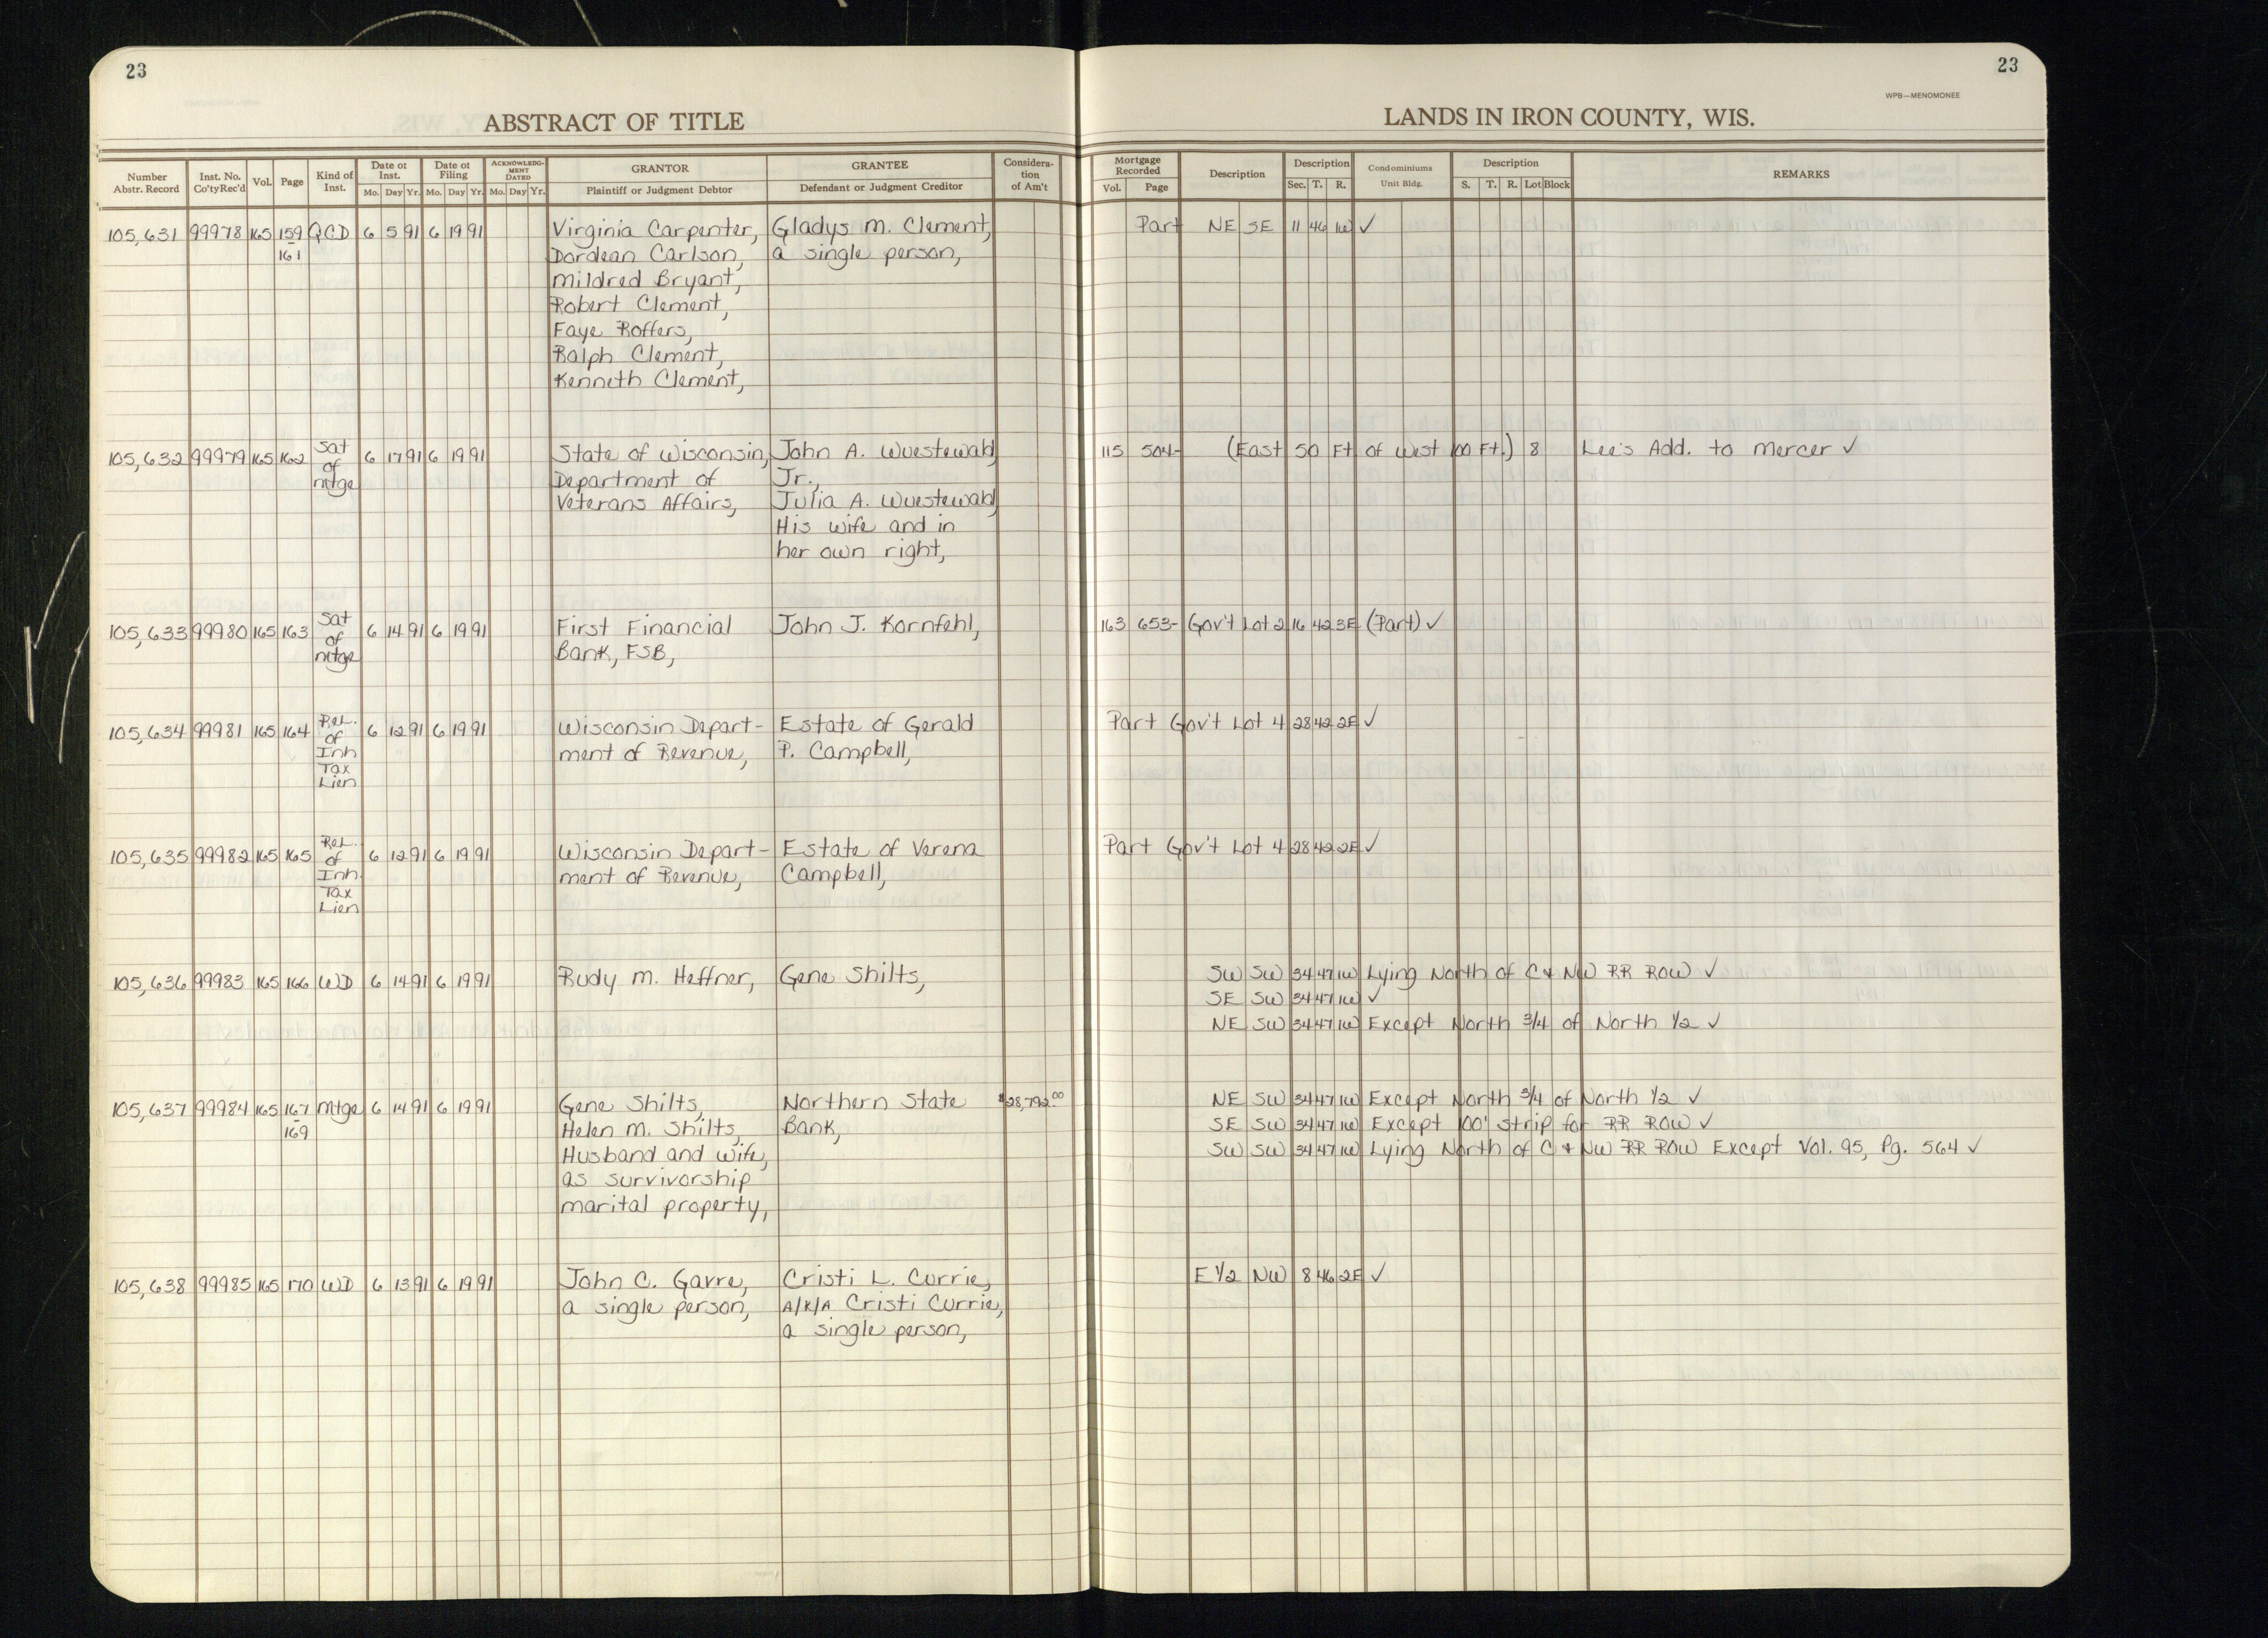 23
23
WPB—MENOMONEE
ABSTRACT OF TITLE
LANDS IN IRON COUNTY, WIS.
Number Abstr. Record | Inst. No. Co'ty Rec'd | Vol. | Page | Kind of Inst. | Date of Inst. Mo. Day Yr. | Date of Filing Mo. Day Yr. | ACKNOWLEDGMENT DATED Mo. Day Yr. | GRANTOR Plaintiff or Judgment Debtor | GRANTEE Defendant or Judgment Creditor | Consideration of Am't | Mortgage Recorded Vol. Page | Description | Description Sec. T. R. | Condominiums Unit Bldg. | Description S. T. R. Lot Block | REMARKS
105,631 99978 165 159 QCD 6 5 91 6 19 91 Virginia Carpenter, Gladys M. Clement, Part NE SE 11 46 1W ✓
161 Dordean Carlson, a single person,
Mildred Bryant,
Robert Clement,
Faye Roffers,
Ralph Clement,
Kenneth Clement,
105,632 99979 165 162 Sat 6 17 91 6 19 91 State of Wisconsin, John A. Wuestewald 115 504- (East 50 Ft of West 100 Ft.) 8 Lee's Add. to Mercer ✓
of Department of Jr.,
mtge Veterans Affairs, Julia A. Wuestewald
His wife and in
her own right,
105,633 99980 165 163 Sat 6 14 91 6 19 91 First Financial John J. Kornfehl, 163 653- Gov't Lot 2 16 42 3E (Part) ✓
of Bank, FSB,
mtge
105,634 99981 165 164 Rel. 6 12 91 6 19 91 Wisconsin Depart- Estate of Gerald Part Gov't Lot 4 28 42 2E ✓
of ment of Revenue, P. Campbell,
Inh
Tax
Lien
105,635 99982 165 165 Rel. 6 12 91 6 19 91 Wisconsin Depart- Estate of Verena Part Gov't Lot 4 28 42 2E ✓
of ment of Revenue, Campbell,
Inh.
Tax
Lien
105,636 99983 165 166 WD 6 14 91 6 19 91 Rudy M. Heffner, Gene Shilts, SW SW 34 47 1W Lying North of C & NW RR ROW ✓
SE SW 34 47 1W ✓
NE SW 34 47 1W Except North 3/4 of North 1/2 ✓
105,637 99984 165 167 Mtge 6 14 91 6 19 91 Gene Shilts, Northern State $28,792.00 NE SW 34 47 1W Except North 3/4 of North 1/2 ✓
169 Helen M. Shilts, Bank, SE SW 34 47 1W Except 100' strip for RR ROW ✓
Husband and wife, SW SW 34 47 1W Lying North of C & NW RR ROW Except Vol. 95, Pg. 564 ✓
as survivorship
marital property,
105,638 99985 165 170 WD 6 13 91 6 19 91 John C. Gavre, Cristi L. Currie, E 1/2 NW 8 46 2E ✓
a single person, A/K/A Cristi Currie,
a single person,